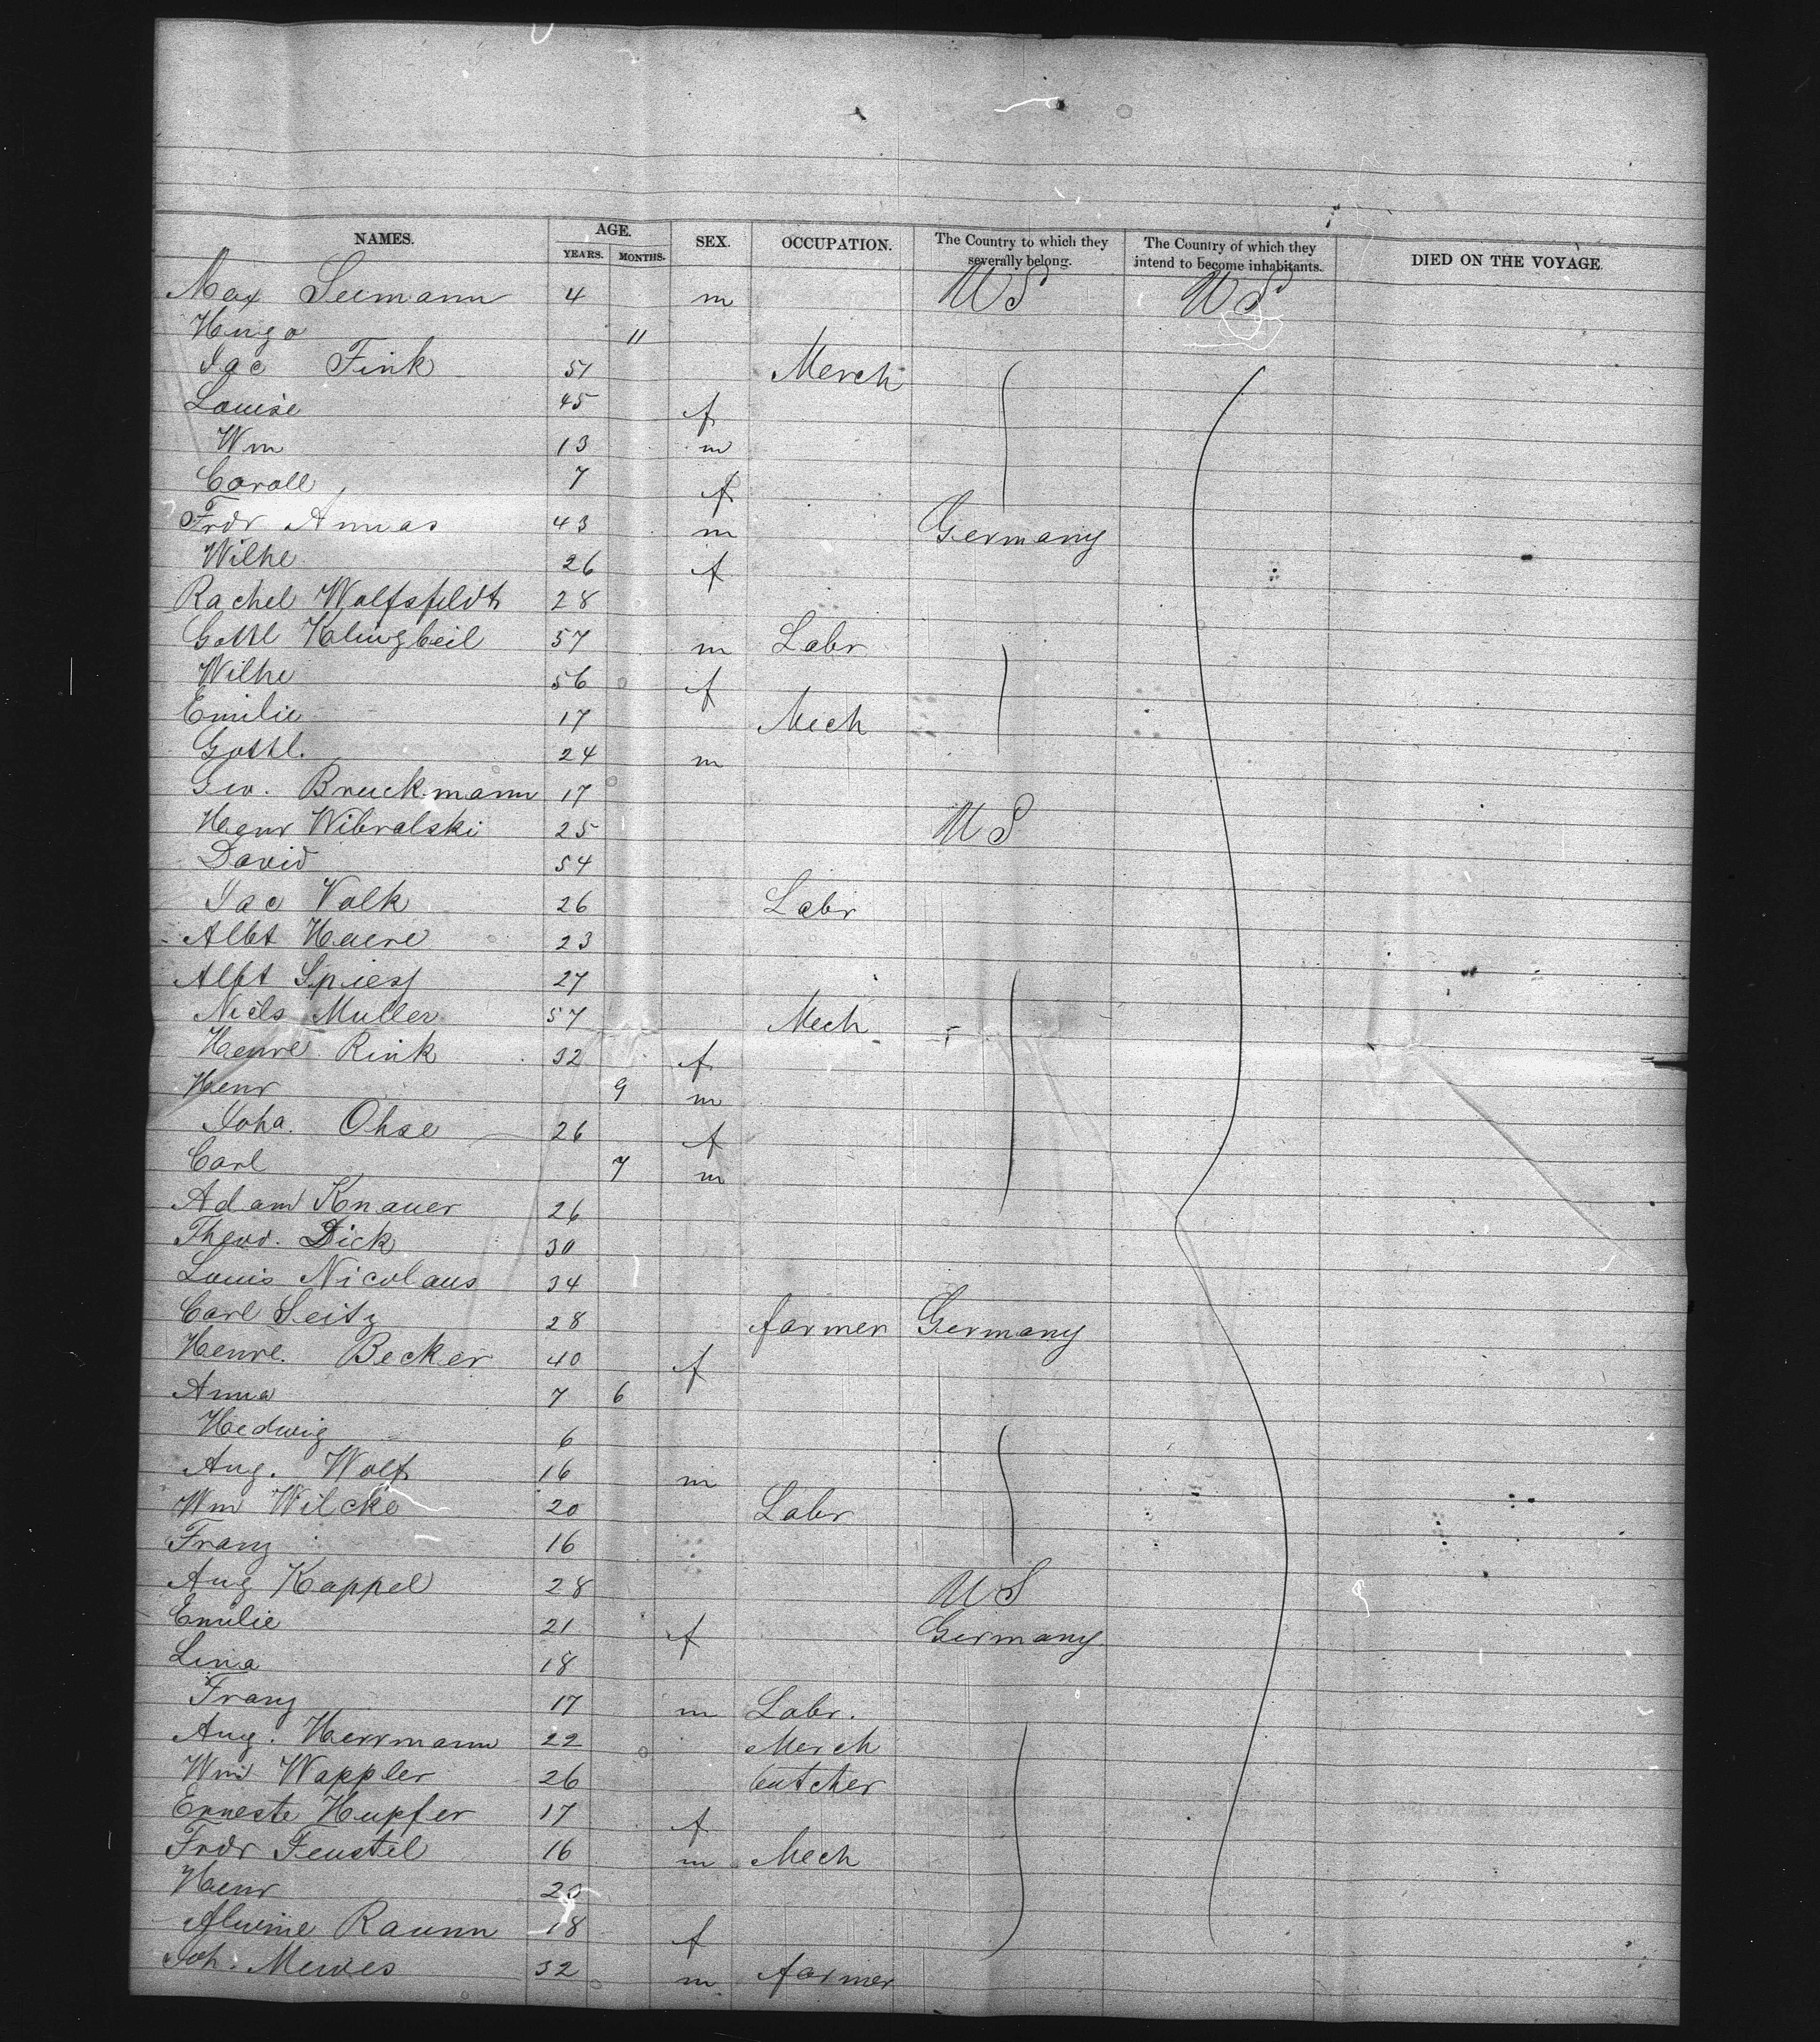 NAMES. AGE. SEX. OCCUPATION. The Country to which they severally belong. The Country of which they intend to become inhabitants. DIED ON THE VOYAGE.
YEARS. MONTHS.
Max Seemann 4 m US US
Hugo 11
Jac Fink 51 Merch
Louise 45 f
Wm 13 m
Caroll 7 f
Frdr Annas 43 m Germany
Wilhe 26 f
Rachel Wolfsfeldt 28
Gottl Klingbeil 57 m Labr
Wilhe 56 f
Emilie 17 Mech
Gottl. 24 m
Geo. Bruckmann 17
Henr Wibralski 25 US
David 54
Jac Volk 26 Labr
Albt Haere 23
Albt Spiess 27
Niels Muller 57 Mech
Henre Rink 32 f
Henr 9 m
Joha. Ohse 26 f
Carl 7 m
Adam Knauer 26
Theod. Dick 30
Louis Nicolaus 34
Carl Seitz 28 farmer Germany
Henre. Becker 40 f
Anna 7 6
Hedwig 6
Aug. Wolf 16 m
Wm Wilcke 20 Labr
Franz 16
Aug Kappel 28 US
Emilie 21 f Germany
Lina 18
Franz 17 m Labr.
Aug. Herrmann 22 Merch
Wm Wappler 26 butcher
Erneste Hupfer 17 f
Frdr Feustel 16 m Mech
Henr 20
Alwine Raunn 18 f
Joh. Mewes 32 m farmer